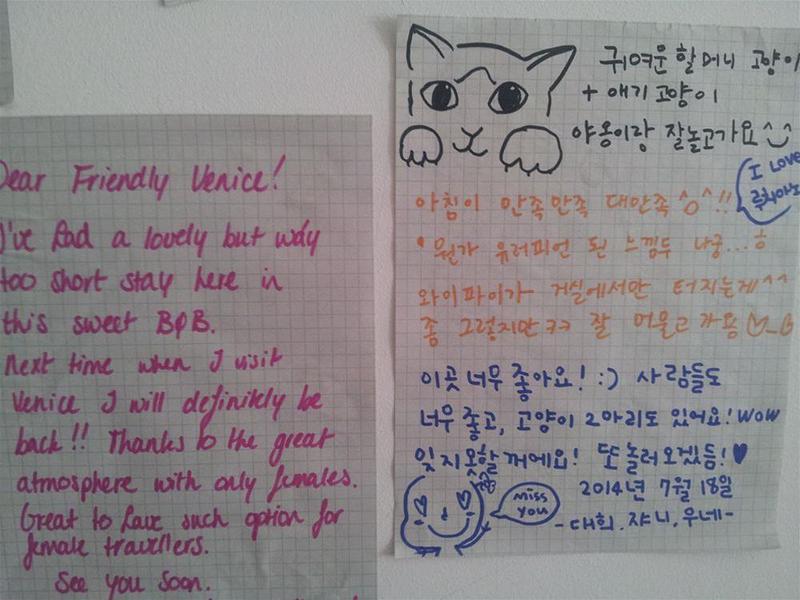 Dear Friendly Venice!
I've had a lovely but way
too short stay here in
this sweet B&B.
Next time when I visit
Venice I will definitely be
back!! Thanks to the great
atmosphere with only females.
Great to have such option for
female travellers.
See you soon.
귀여운 할머니 고양이
+ 애기 고양이
야옹이랑 잘놀고가요^^
I LOVE
루치아노
아침이 만족만족 대만족^^!!
•뭔가 유러피언 된 느낌두 나궁...ㅎ
와이파이가 거실에서만 터지는게^^
좀 그렇지만ㅋㅋ 잘 머물고 가용
이곳 너무 좋아요! :) 사람들도
너무 좋고, 고양이 2마리도 있어요! WOW
잊지 못할 꺼에요! 또 놀러오겠듬! ♥
miss
you
2014년 7월 18일
-대희. 쟈니. 우네-